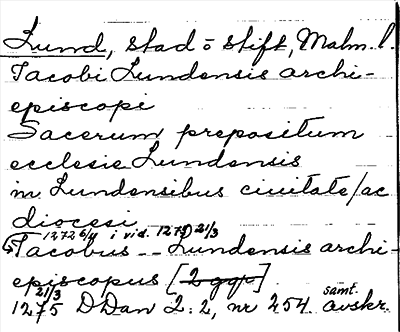 Lund, stad o stift, Malm. l.
Iacobi Lundensis archi-
episcopi
Sacerum prepositum
ecclesie Lundensis
in Lundensibus ciuitate/ac
diocesi
1272 6/4 i vid. 1275 21/3
Iacobus -- Lundensis archi-
episcopus [2 ggr]
21/3 samt.
1275 DDan 2:2, nr 254 avskr.